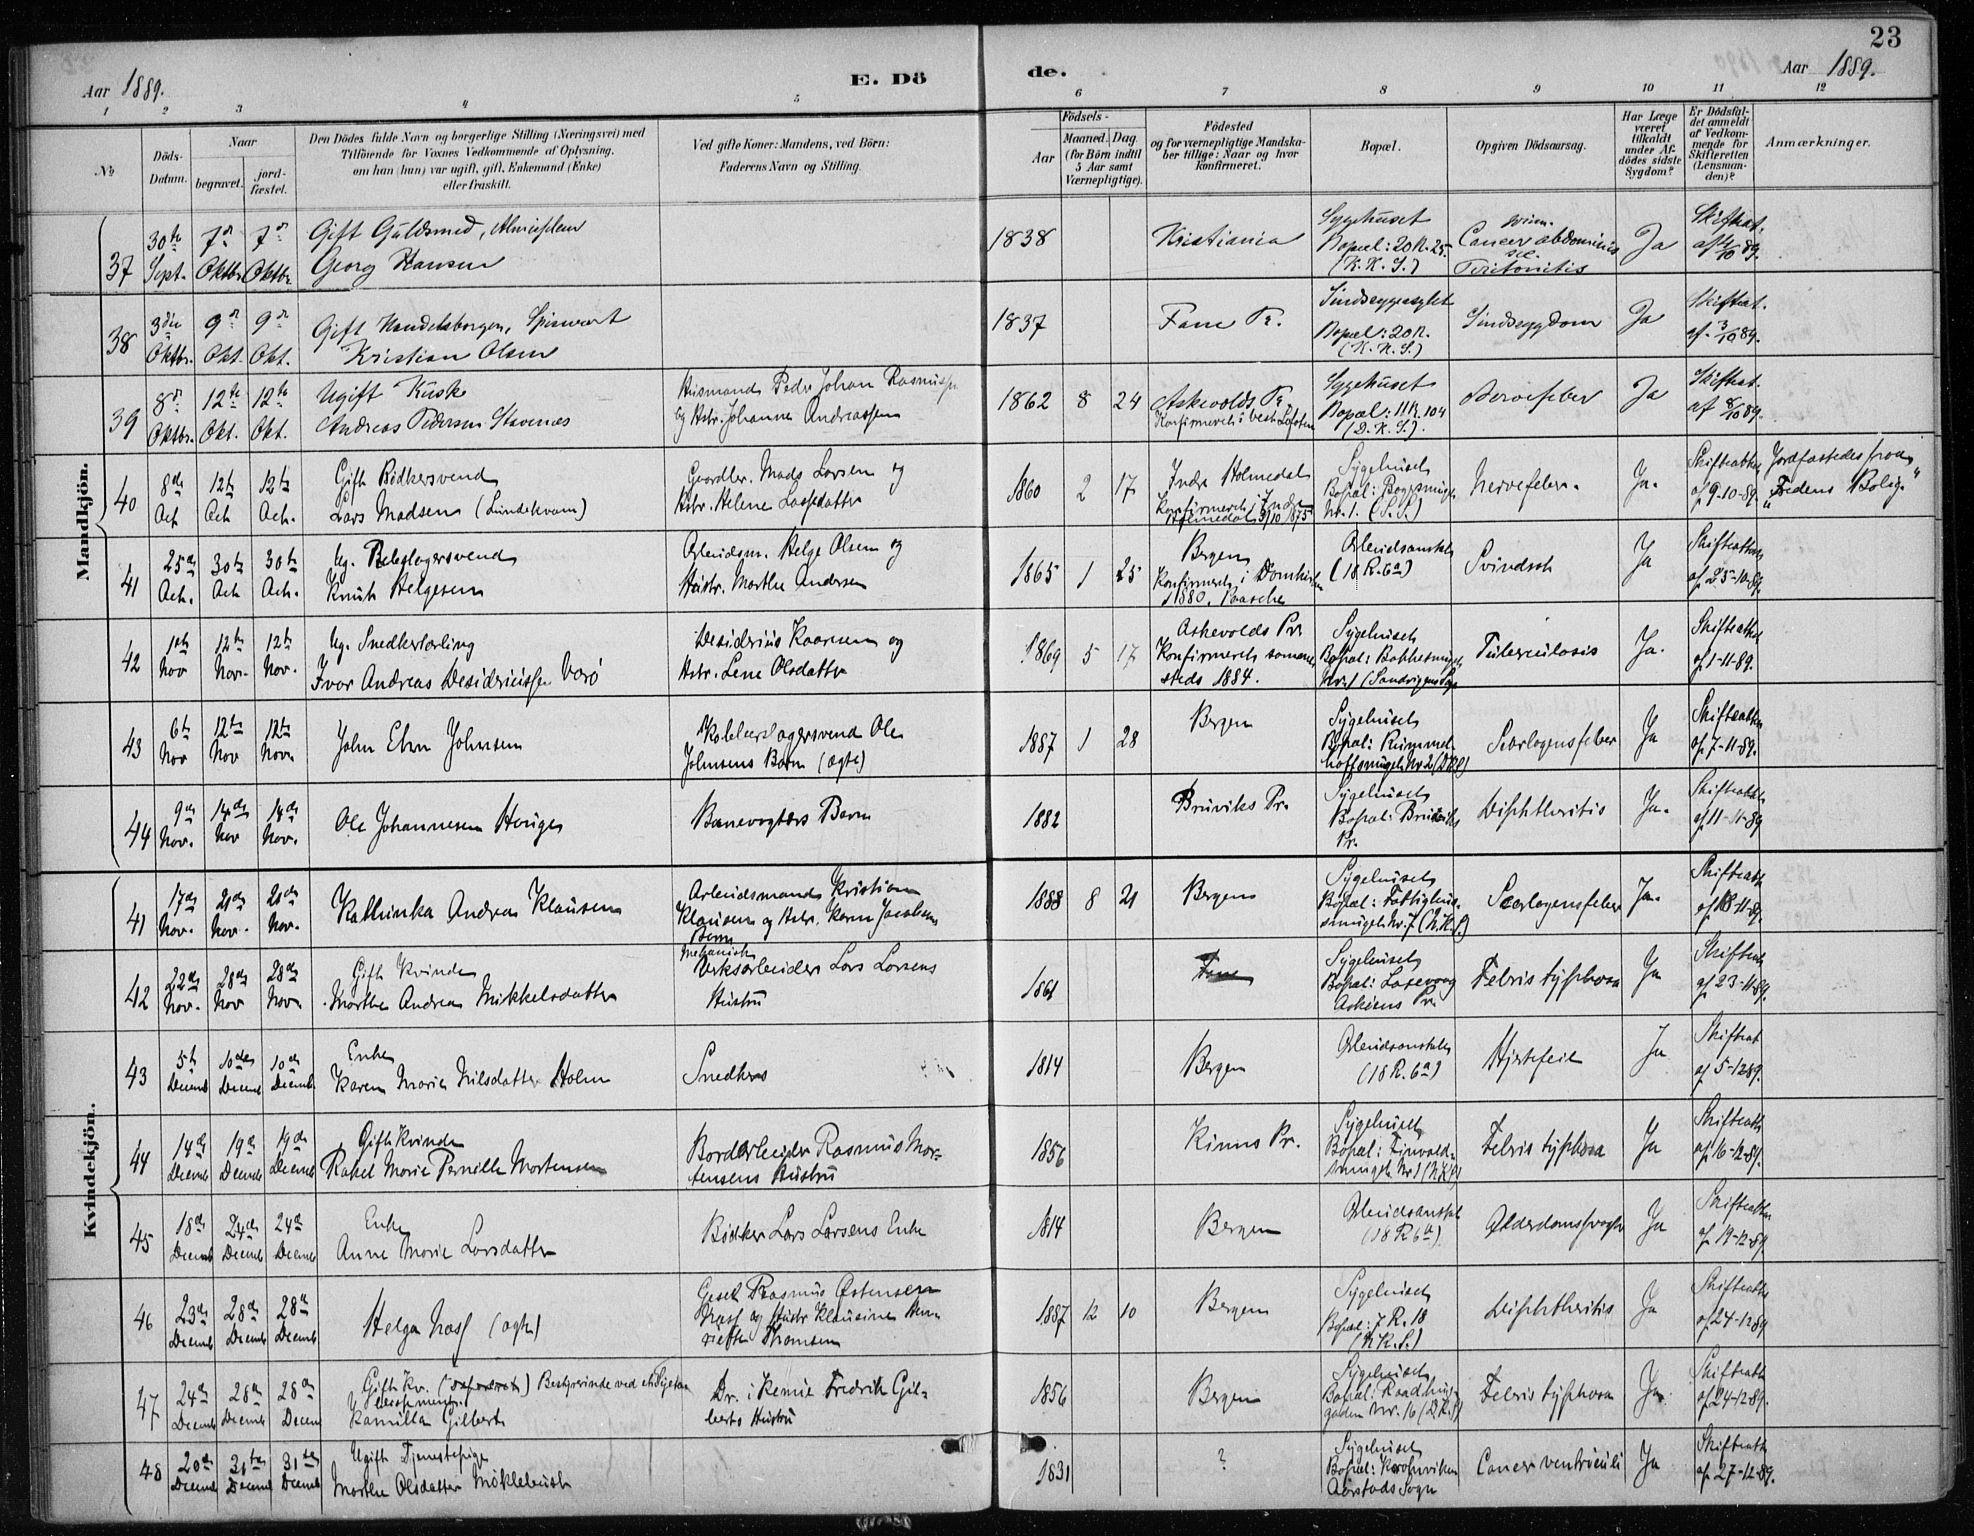 23
Aar 1889.
E. Dö
de.
Aar 1889.
1 2 3 4 5 6 7 8 9 10 11 12
No
Döds-
Datum.
Naar
begravet.
jord-
fæstet.
Den Dödes fulde Navn og borgerlige Stilling (Næringsvei) med
Tilföiende for Voxnes Vedkommende af Oplysning.
om han (hun) var ugift, gift, Enkemand (Enke)
eller fraskilt.
Ved gifte Koner: Mandens, ved Börn:
Faderens Navn og Stilling.
Födsels-
Aar
Maaned. Dag.
(for Börn indtil
5 Aar samt
Værnepligtige).
Födested
og for værnepligtige Mandska-
ber tillige: Naar og hvor
konfirmeret.
Bopæl.
Opgiven Dödsaarsag.
Har Læge
været
tilkaldt
under Af-
dödes sidste
Sygdom?
Er Dödsfal-
det anmeldt
af Vedkom-
mende for
Skifteretten
(Lensman-
den)?
Anmærkninger.
Mandkjön.
37 30te Sept. 7de Oktbr. 7de Oktbr.
Gift Guldsmed,
Georg Hansen
1838 Kristiania
Sygehuset
Bopæl: 20 R. 25.
(K. K. S.)
Cancer abdominis
Peritonitis
Ja
Skifteat.
af 4/10 89.
38 3die Oktbr. 9de Okt. 9de Okt.
Gift Handelsborger, Spisevært
Kristian Olsen
1837 Fane Pr.
Sindssygeasylet
Bopæl: 20 R.
(K. K. S.)
Sindssygdom
Ja
Skifteat.
af 3/10 89.
39 8de Oktbr. 12te Okt. 12te Okt.
Ugift Kusk
Andreas Pedersen Stavenes
Husmand Peder Johan Rasmuss.
og Hstr. Johanne Andreassen
1862 8 24
Askevolds Pr.
Konfirmeret i vest Lofoten
Sygehuset
Bopæl: 11 R. 104
(D. K. S.).
Nervefeber
Ja
Skifteat.
af 8/10 89.
40 8de Oct. 12te Oct. 12te Oct.
Gift Bödkersvend
Lars Madsen (Lundekvam)
Gaardbr. Mads Larsen og
Hstr. Helene Larsdatter
1860 2 17
Indre Holmedal
Konfirmeret i Indre
Holmedal 3/10 1875
Sygehuset
Bopæl:
Nr. 1. (S. S.)
Nervefeber.
Ja.
Skifteattest
af 9-10-89.
Jordfæstedes fra
"Fredens Bolig"
41 25de Oct. 30te Oct. 30te Oct.
Ug. Rebslagersvend
Knut Helgesen
Arbeidsm. Helge Olsen og
Hustr. Marthe Andersen
1865 1 25
Bergen
Konfirmeret i Domkirken
1880. Paaske
Arbeidsanstalt
(18 R. 6a)
Svindsot
Ja
Skifteattest
af 25-10-89.
42 1ste Nov 12te Nov. 12te Nov.
Ug. Snedkerlærling
Ivar Andreas Desideriussen Værö
Desiderius Kaaresen og
Hstr. Lene Olsdatter
1869 5 17
Askevolds Pr.
Konfirmeret samme-
steds 1884.
Sygehuset
Bopæl: Bakkesmuget
Nr. 1 (Sandvigens Sogn
Tuberculosis
Ja.
Skifteattest
af 1-11-89.
43 6te Nov 12te Nov 12te Nov.
John Elvn Johnsen
Kobberslagersvend Ole
Johnsens Barn (ægte)
1887 1 28
Bergen
Sygehuset
Bopæl: Rummel-
hoffsmuget Nr 2 (DKS)
Scarlagensfeber
Ja
Skifteattest
af 7-11-89.
44 9de Nov. 14de Nov 14de Nov.
Ole Johannesen Hauge
Banevogters Barn
1882
Bruviks Pr.
Sygehuset
Bopæl: Bruviks
Pr.
Diphtheritis
Ja.
Skifteattest
af 11-11-89
Kvindekjön.
41 17de Nov. 21de Nov. 21de Nov.
Kathinka Andrea Klausen
Arbeidsmand Kristian
Klausen og Hstr. Karen Jacobsens
Barn
1888 8 21
Bergen
Sygehuset
Bopæl: Fattighus-
smuget Nr. 7 (N. K. S.)
Scarlagensfeber
Ja.
Skifteatt
af 18-11-89.
42 22de Nov. 28de Nov 28de Nov
Gift Kvinde
Marthe Andrea Mikkelsdatter
Mekanisk
Verksarbeider Lars Larsens
Hustru
1861
Fane
Sygehuset
Bopæl: Laxevaag
Asköens Pr.
Febris typhosa
Ja
Skifteatt
af 23-11-89.
43 5te Decemb 10de Decemb 10de Decemb
Enke
Karen Marie Nilsdatter Holm
Snedkers
1814
Bergen
Arbeidsanstalt
(18 R. 6a)
Hjertefeil
Ja
Skifteat
af 5-12 89.
44 14de Decemb 19de Decemb 19de Decemb
Gift Kvinde
Rakel Marie Pernille Mortensen
Bordarbeider Rasmus Mor-
tensens Hustru
1856
Kinns Pr.
Sygehuset
Bopæl:
smuget Nr 1 (N.K.S)
Febris typhosa
Ja
Skifteatt
af 16-12-89.
45 18de Decemb 24de Decemb 24de Decemb
Enke
Anne Marie Larsdatter
Bödker Lars Larsens Enke
1814
Bergen
Arbeidsanstalt
(18 R 6a)
Alderdomssvaghed
Ja
Skifteattest
af 19-12-89
46 23de Decemb 28de Decemb 28de Decemb
Helga Nass (ægte)
Gesel Rasmus Östensen
Nass og Hustr Klausine Hen-
riette Thomsen
1887 12 10
Bergen
Sygehuset
Bopæl: 7 R. 18
(N K. S.)
Diphtheritis
Ja
Skifteatt
af 24-12 89
47 24de Decemb 28de Decemb 28de Decem
Gift Kv. (separeret) Bestyrerinde ved et
Kamilla Gilbert
Dr. i Kemie Fredrik Gil-
berts Hustru
1856
Bergen
Sygehuset
Bopæl: Raadhus-
gaden Nr. 16 (D.K.S)
Febris typhosa
Ja.
Skifteatt
af 24-12-89.
48 20de Decemb 31te Decemb 31te Decemb
Ugift Tjenestepige
Marthe Olsdatter Möklebust
1831
?
Sygehuset
Bopæl: Kronviken
Aarstads Sogn
Cancer ventriculi
Ja
Skifteatt
af 27-12-89.